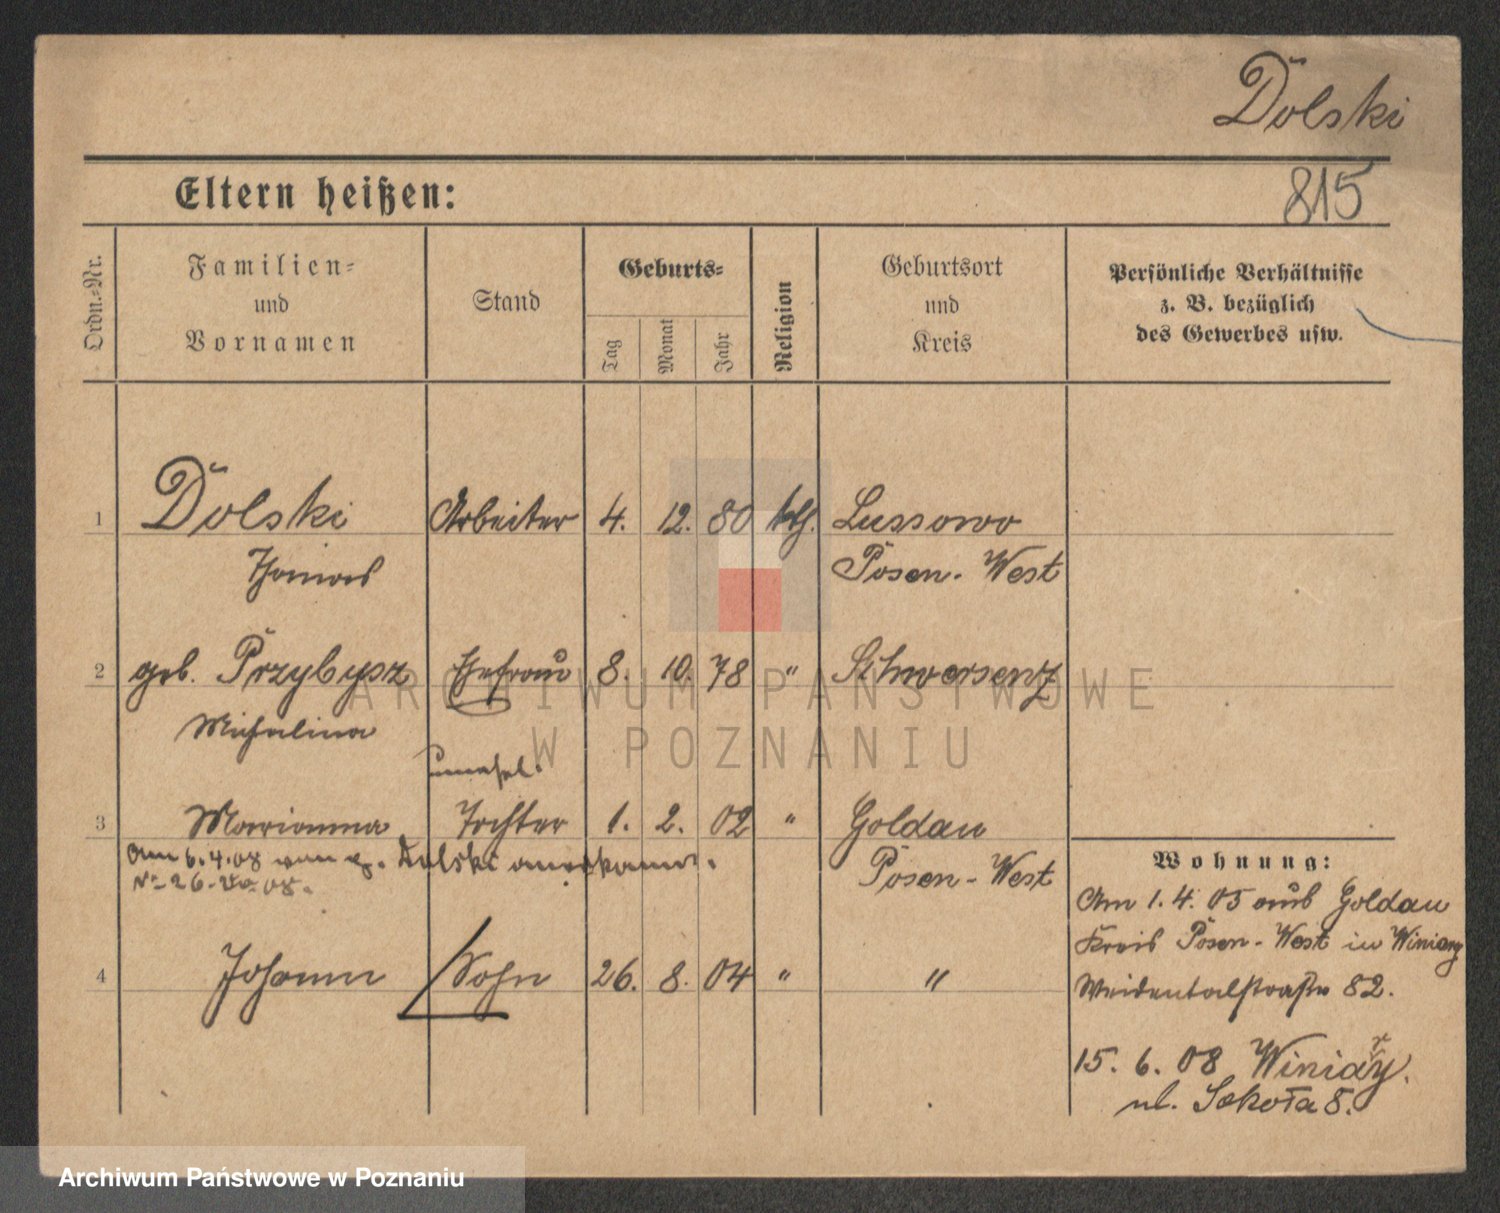 Dolski
Eltern heißen:
815
Ordn.-Nr.
Familien-
und
Vornamen
Stand
Geburts-
Tag
Monat
Jahr
Religion
Geburtsort
und
Kreis
Persönliche Verhältnisse
z. B. bezüglich
des Gewerbes usw.
1 Dolski Arbeiter 4. 12. 80 kth. Lussowo
Thomas Posen-West
2 geb. Przybysz Ehefrau 8. 10. 78 " Schwersenz
Michalina
unehel.
3 Marianna Tochter 1. 2. 02 " Goldau
Am 6.4.08 von Dolski anerkannt.
Posen-West
4 Johann Sohn 26. 8. 04 " "
Wohnung:
Am 1.4.05 aus Goldau
Kreis Posen-West in Winiary
Weidentalstraße 82.
15. 6. 08 Winiary.
ul. Sokoła 8.
ARCHIWUM PAŃSTWOWE
W POZNANIU
Archiwum Państwowe w Poznaniu